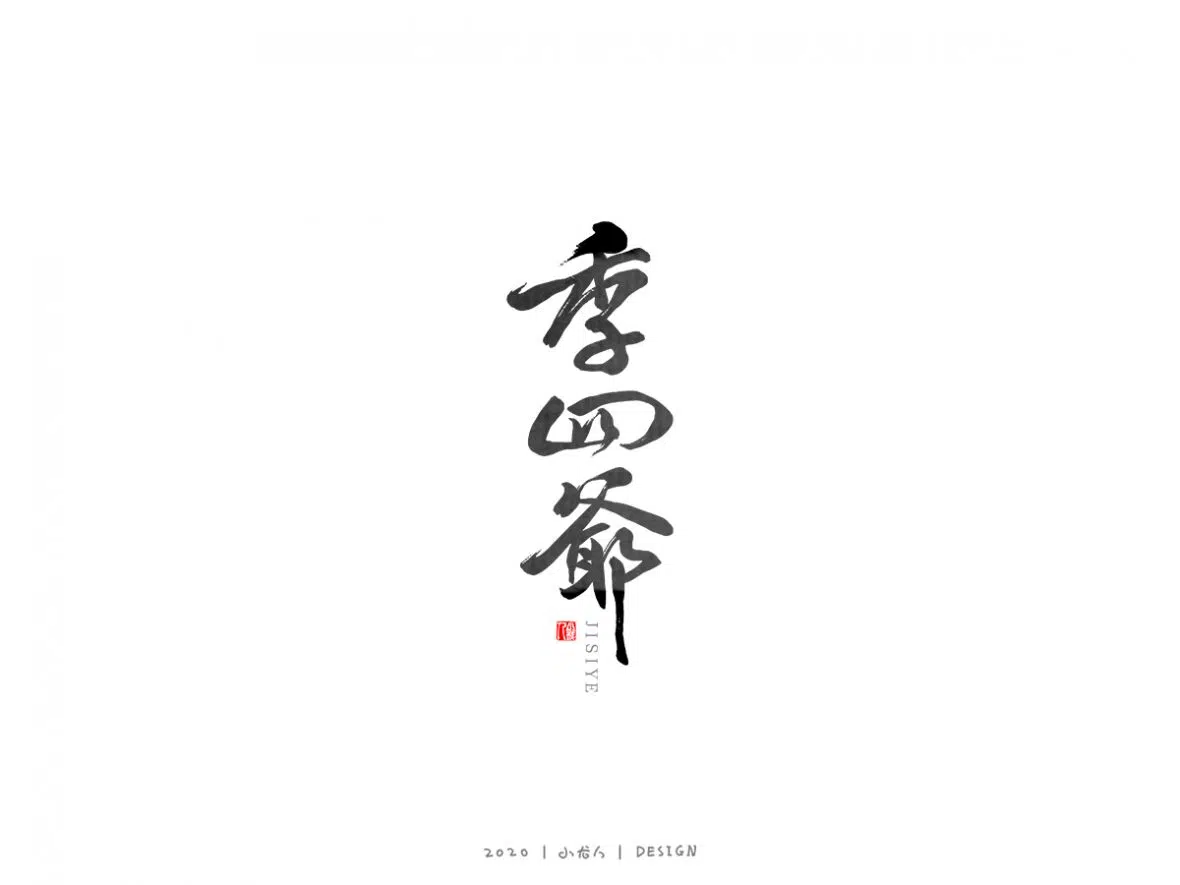 季四爺
JISIYE
2020 | 小龙人 | DESIGN